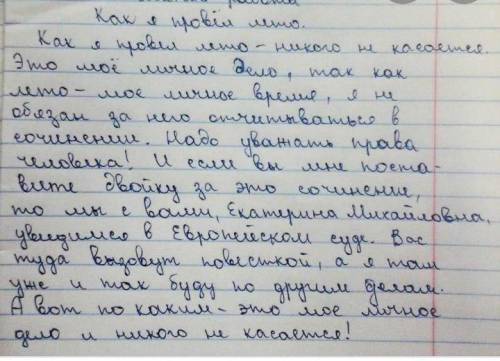 Как я провёл лето.
Как я провел лето - никого не касается.
Это моё личное дело, так как
лето - мое личное время, я не
обязан за него отчитываться в
сочинении. Надо уважать права
человека! И если вы мне поста-
вите двойку за это сочинение,
то мы с вами, Екатерина Михайловна,
увидимся в Европейском суде. Вас
туда вызовут повесткой, а я там
уже и так буду по другим делам.
А вот по каким - это мое личное
дело и никого не касается!